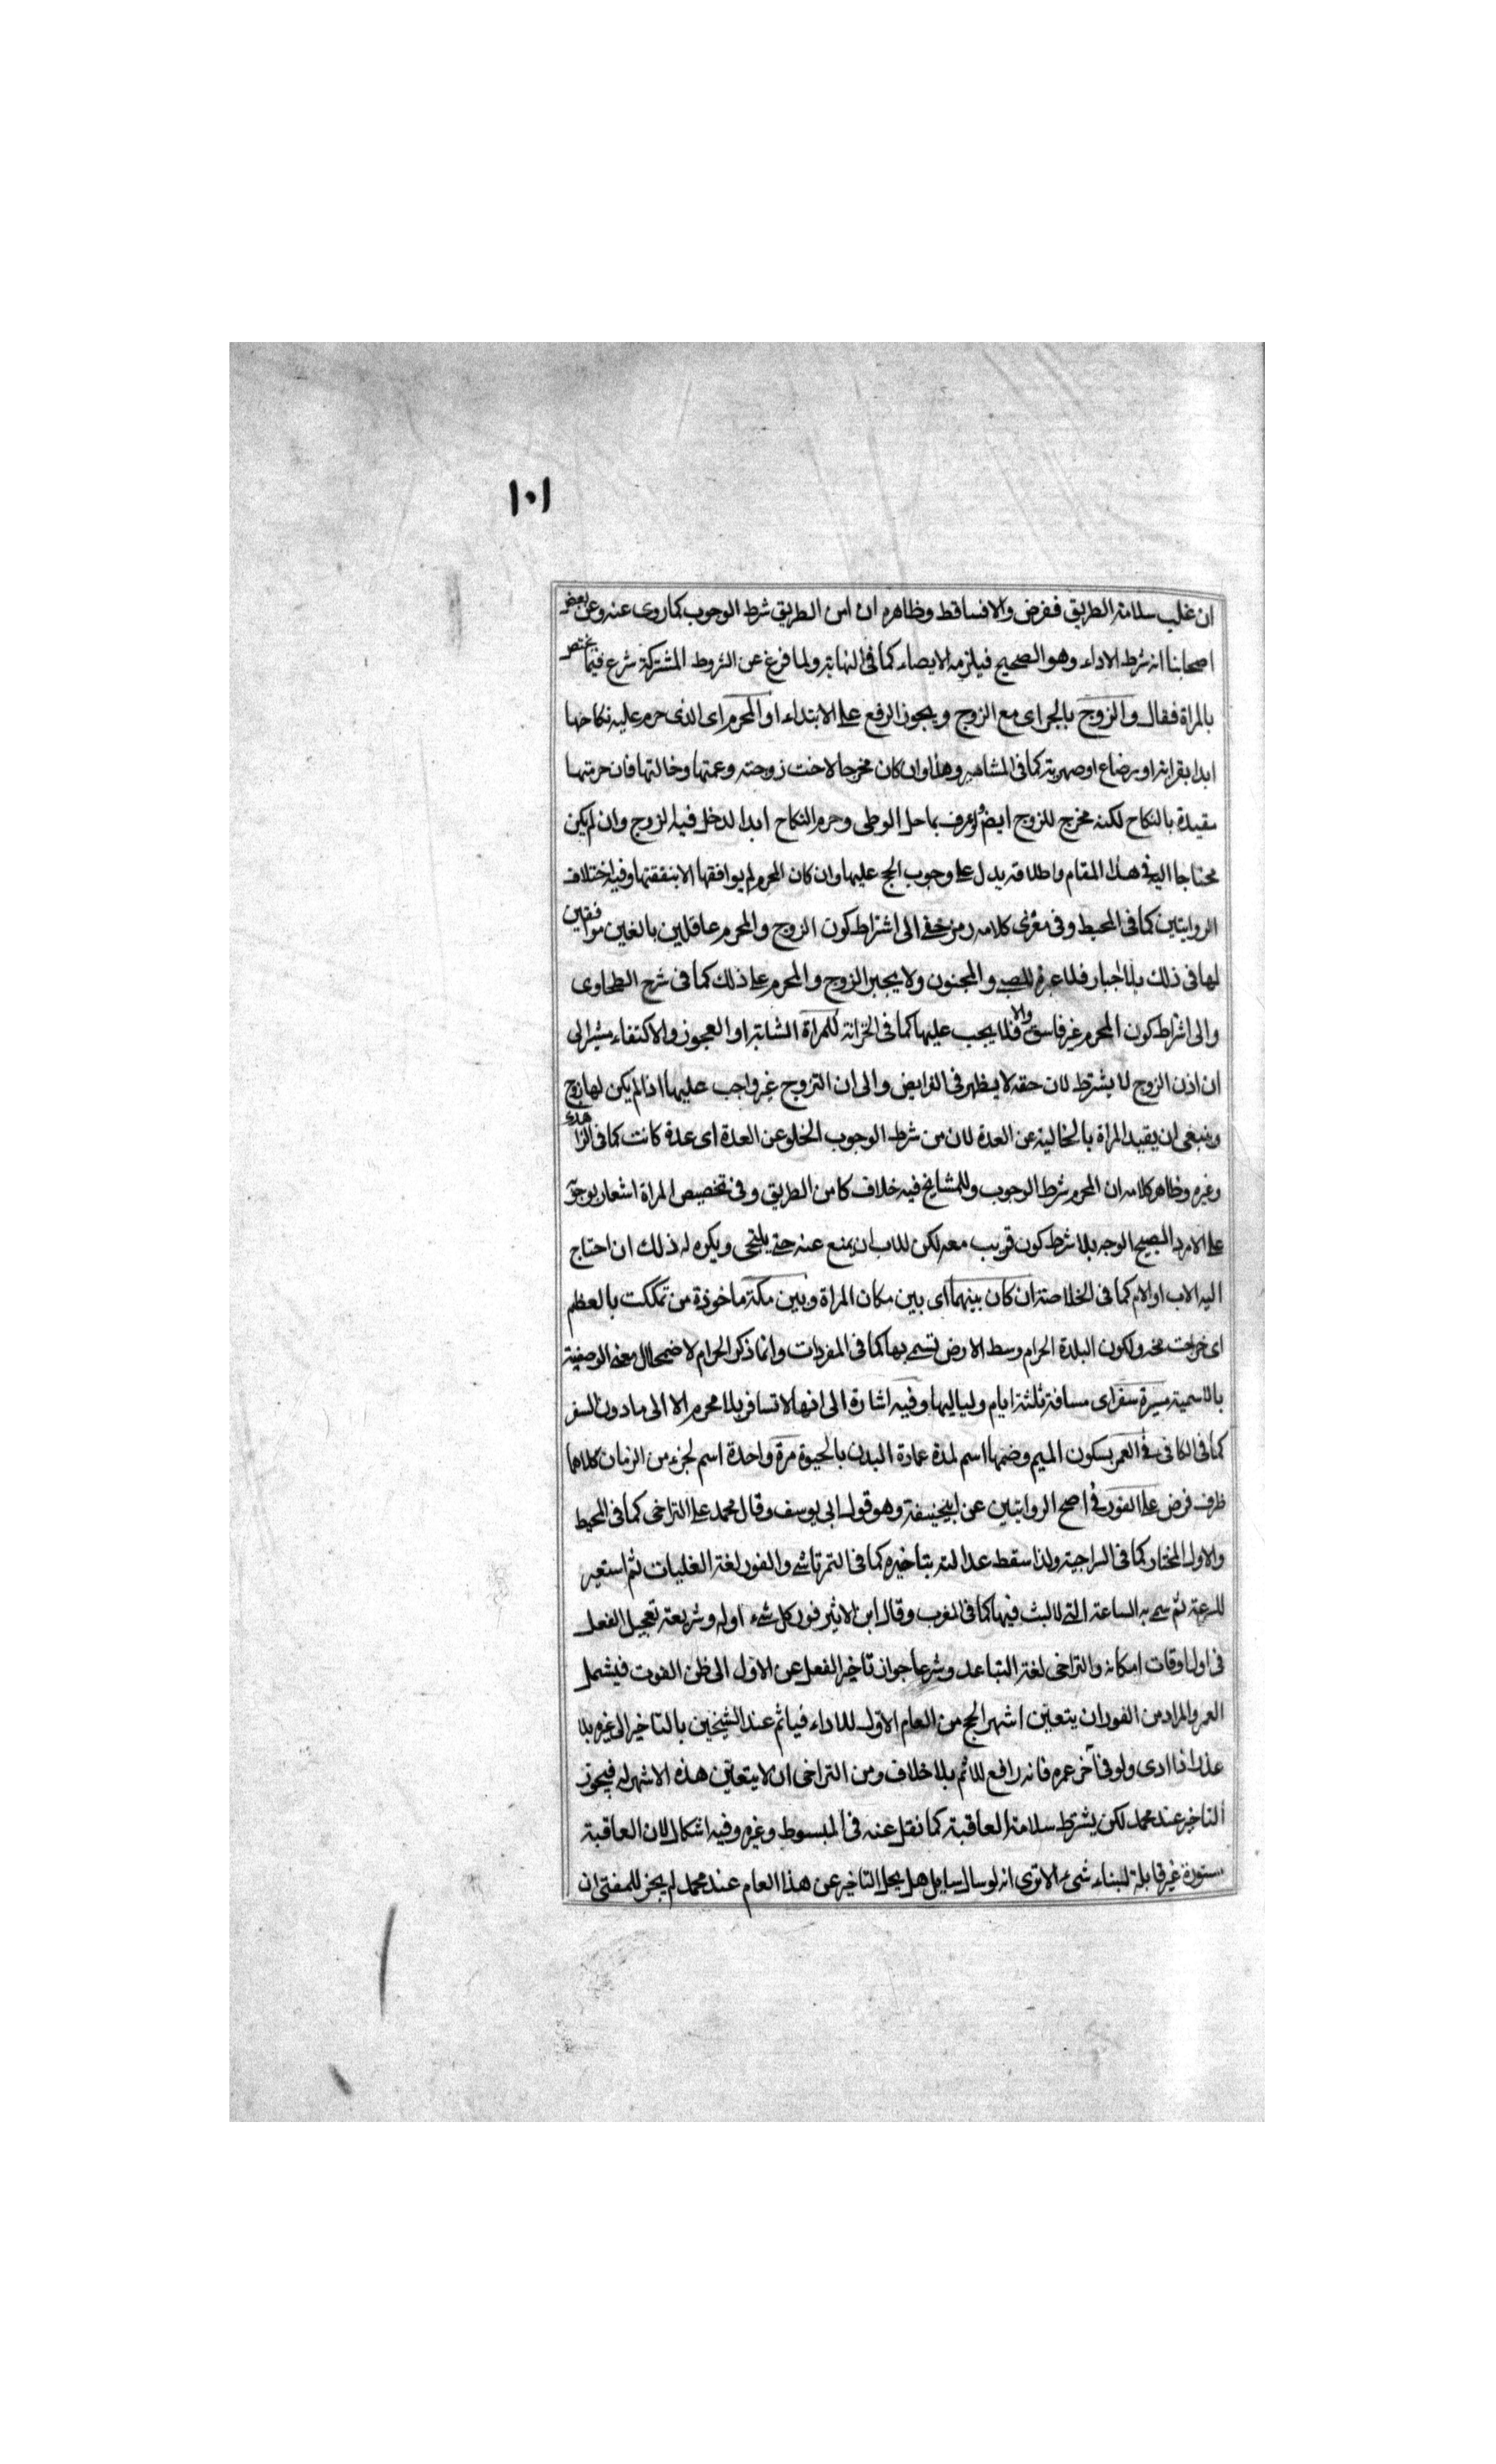 ١٠١
ان غلب سلامة الطريق ففرض والا فساقط وظاهره ان امن الطريق شرط الوجوب كما روى عنه وعن بعض
اصحابنا انه شرط الاداء وهو الصحيح فيلزمه الايصاء كما فى النهاية ولما فرغ عن الشروط المشتركة شرع فيما يختص
بالمراة فقال والزوج بالجر اى مع الزوج ويجوز الرفع على الابتداء او المحرم اى الذى حرم عليه نكاحها
ابدا بقرابة او رضاع او صهرية كما فى المشاهير وهذا وان كان مخرجا لاخت زوجته وعمتها وخالتها فان حرمتها
مقيدة بالنكاح لكنه مخرج للزوج ايضا ولو عرف بما حل الوطى وحرم النكاح ابدا لدخل فيه الزوج وان لم يكن
محتاجا اليه فى هذا المقام واطلاقه يدل على وجوب الحج عليها وان كان المحرم لم يوافقها الا بنفقتها وفيه اختلاف
الروايتين كما فى المحيط وفى مغزى كلامه رمز خفى الى اشتراط كون الزوج والمحرم عاقلين بالغين موافقين
لها فى ذلك بلا اجبار فلا عبرة للصبى والمجنون ولا يجبر الزوج والمحرم على ذلك كما فى شرح الطحاوى
والى اشتراط كون المحرم غير فاسق والا فلا يجب عليها كما فى الخزانة للمراة الشابة او العجوز والاكتفاء مشير الى
ان اذن الزوج لا يشترط لان حقه لا يظهر فى الفرايض والى ان التزوج غير واجب عليها اذا لم يكن لها زوج
وينبغى ان يقيد المراة بالخالية عن العدة لان من شرط الوجوب الخلو عن العدة اى عدة كانت كما فى الزاهدى
وغيره وظاهر كلامه ان المحرم شرط الوجوب وللمشايخ فيه خلاف كامن الطريق وفى تخصيص المراة اشعار بوجوبه
على الامرد الصبيح الوجه بلا شرط كون قريب معه لكن للاب ان يمنع عنه حتى يلتحى ويكره له ذلك ان احتاج
اليه الاب او الام كما فى الخلاصة ان كان بينهما اى بين مكان المراة وبين مكة ماخوذة من تمككت بالعظم
اى خرجت مخه ولكون البلدة الحرام وسط الارض تسمى بها كما فى المفردات وانما ذكر الحرام لاضمحلال معنى الوصفية
بالاسمية مسيرة سفر اى مسافة ثلثة ايام ولياليها وفيه اشارة الى انها لا تسافر بلا محرم الا الى ما دون السفر
كما فى الكافى فى العمر بسكون الميم وضمها اسم لمدة عمارة البدن بالحيوة مرة واحدة اسم لجزء من الزمان كلاهما
ظرف فرض على الفور فى اصح الروايتين عن ابيحنيفة وهو قول ابى يوسف وقال محمد على التراخى كما فى المحيط
والاول المختار كما فى السراجية ولذا سقط عدالته بتاخيره كما فى التمرتاشى والفور لغة الغليات ثم استعير
للسرعة ثم سمى به الساعة التى لا لبث فيها كما فى المغرب وقال ابن الاثير فور كل شىء اوله وشريعة تعجيل الفعل
فى اول اوقات امكانه والتراخى لغة التباعد وشرعا جواز تاخير الفعل عن الاول الى ظن الفوت فيشمل
العمر والمراد من الفور ان يتعين اشهر الحج من العام الاول للاداء فياثم عند الشيخين بالتاخير الى غيره بلا
عذر اذا ادى ولو فى آخر عمره فانه رافع للاثم بلا خلاف ومن التراخى ان لا يتعين هذه الاشهر له فيجوز
التاخير عند محمد لكن يشترط سلامة العاقبة كما نقل عنه فى المبسوط وغيره وفيه اشكال لان العاقبة
مستورة غير قابلة لبناء شىء الا ترى انه لو سال سايل هل يحل التاخير عن هذا العام عند محمد لم يجز للمفتى ان